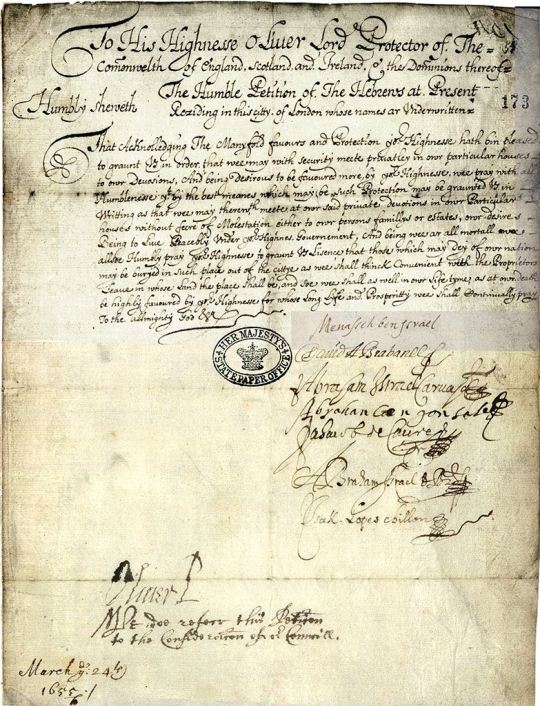 To His Highnesse Oliver Lord Protector of The=
Comonwelth of England, Scotland, and Ireland, & the Dominions thereof=
The Humble Petition of The Hebrews at Present
Humbly Sheweth
Reziding in this city of London whose names ar Underwritten=
173
That Acknolledging The Manyfold favours and Protection yor Highnesse hath bin pleased
to graunt Us in order that wee may with security meete priuatley in owr particular houses
to owr Deuosions, And being desirous to be favoured more by yor Highnesse, wee pray with all
Humblenesse yt by the best meanes which may be such Protection may be graunted Us in
Writting as that wee may therewth meete at owr said priuate deuotions in owr Particular
houses without feere of Molestation either to owr persons famillys or estates, owr desires
Being to Liue Peacebly Under yor Highnes Gouernement, And being wee ar all mortall wee
allsoe Humbly pray yor Highnesse to graunt Us Lisence that those which may dey of owr nation
may be buried in such place out of the cittye as wee shall thinck Convenient with the Proprietors
Leaue in whose Land the place shall be, and soe wee shall as well in owr Life tyme, as at owr death
be highly favoured by yor Highnesse for whose Long Life and Prosperitty wee shall Continually pray
To the allmighty God &c
Menasseh ben Israel
HER MAJESTY'S
STATE PAPER OFFICE
David Abrabanel
Abraham Israel Caruajal
Abraham Coen Gonsales
Jahacob de Caceres
Abraham Israel de
Isak Lopes Chillon
Oliver P
Wee doe referr this Petition
to the Consideracon of or Councill.
March ye 24th
1655/6